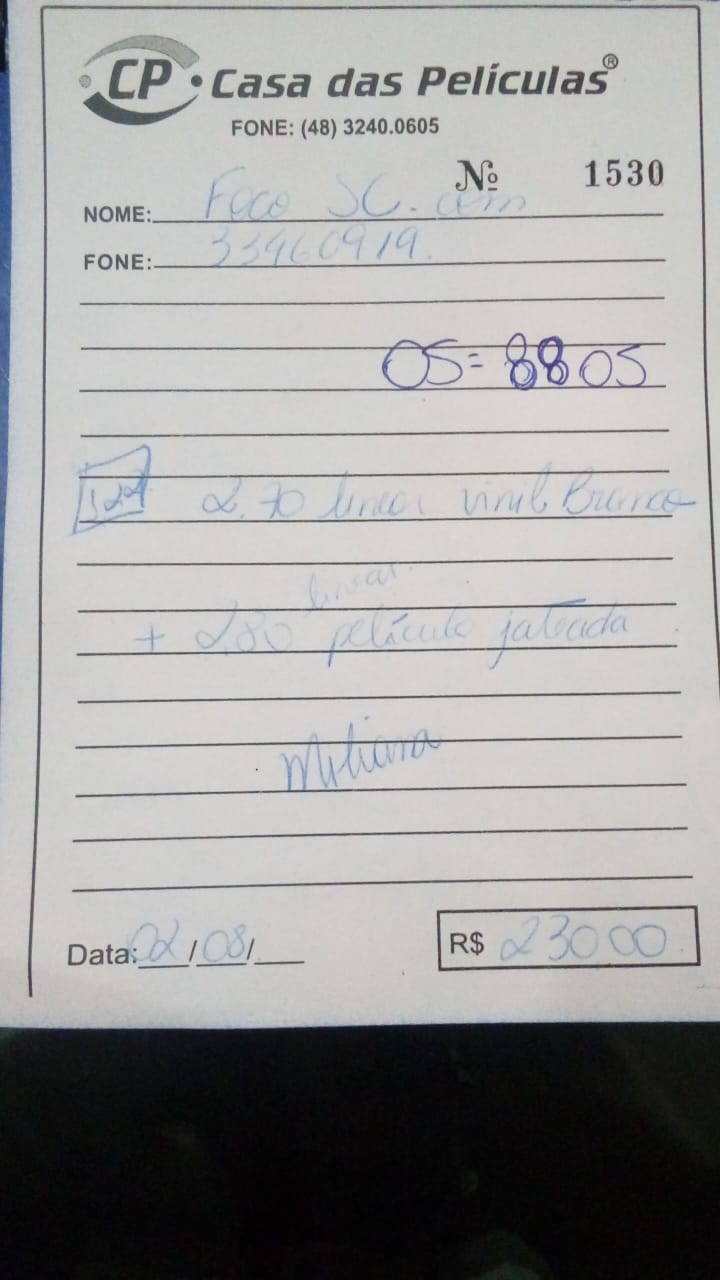 CP • Casa das Películas®
FONE: (48) 3240.0605
Nº 1530
NOME: Foco SC. com
FONE: 33460919.
OS= 8805
2,70 linear vinil Branco
linear.
+ 2,80 película jateada
Data: 02/08/
R$ 23000